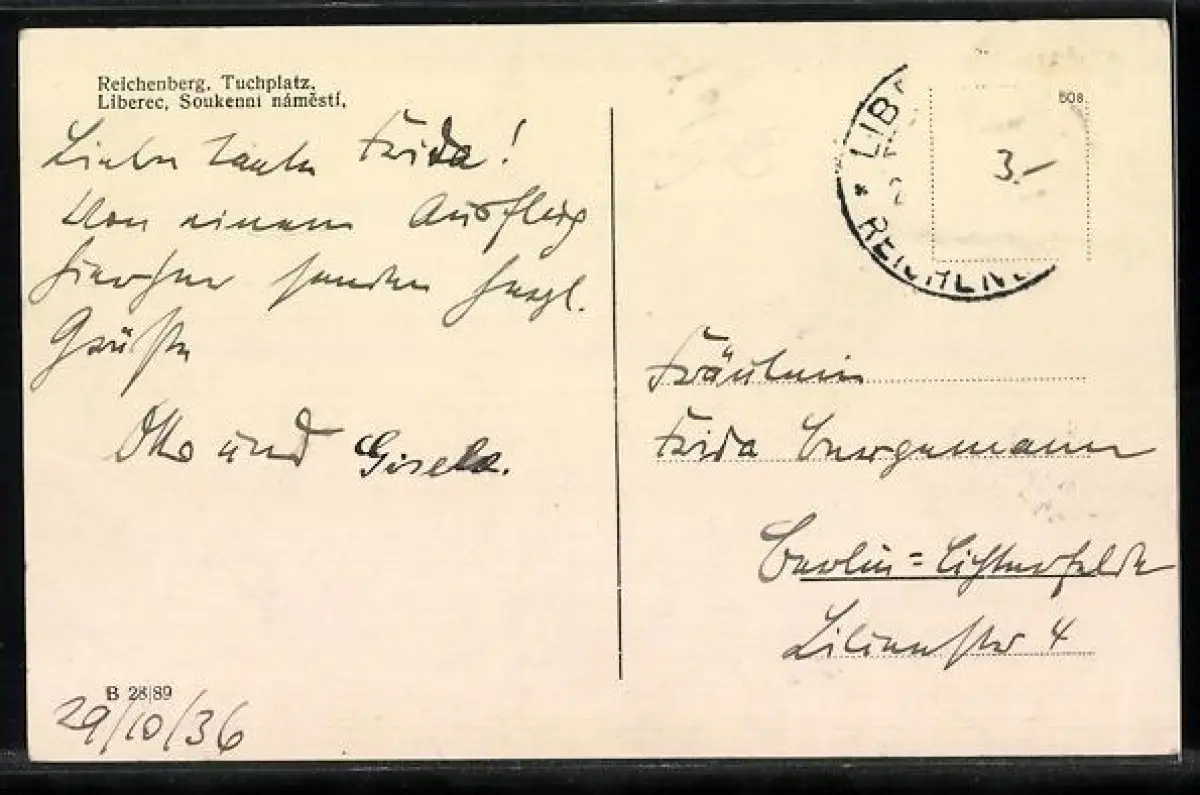 Reichenberg, Tuchplatz,
Liberec, Soukenní náměstí,
Liebe Tante Frida!
Von einem Ausflug
hierher senden herzl.
Grüße
Otto und Gisela.
B 28|89
29/10/36
LIB
REICHENB
508
3.-
Fräulein
Frida Bergemann
Berlin=Lichterfelde
Lilienstr 4